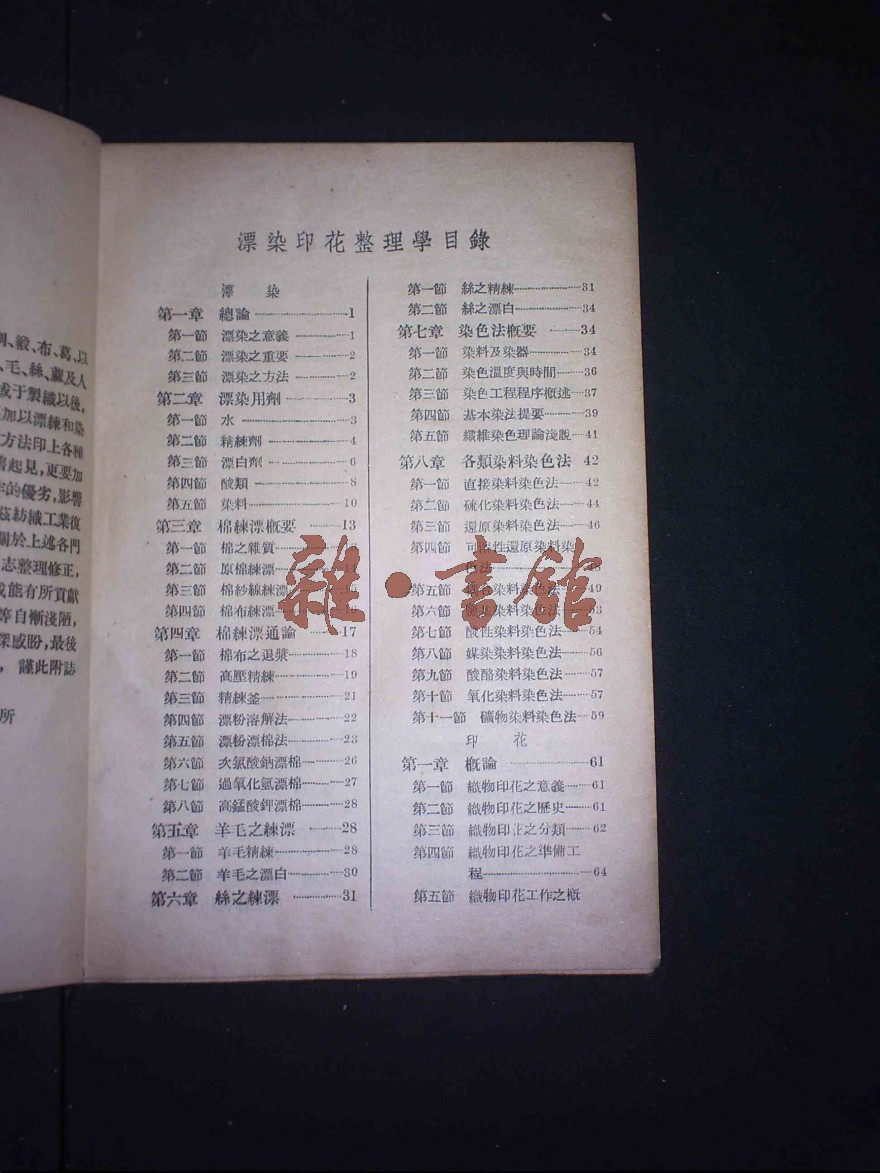 綢、緞、布、葛、以
、毛、絲、蔴及人
或于製織以後,
加以漂練和染
方法印上各種
起見,更要加
的優劣,影響
茲紡織工業復
關於上述各門
志整理修正,
或能有所貢獻
等自慚淺陋,
深感盼,最後
,謹此附誌
所
漂染印花整理學目錄
漂 染
第一章 總論 1
第一節 漂染之意義 1
第二節 漂染之重要 2
第三節 漂染之方法 2
第二章 漂染用劑 3
第一節 水 3
第二節 精練劑 4
第三節 漂白劑 6
第四節 酸類 8
第五節 染料 10
第三章 棉練漂概要 13
第一節 棉之雜質
第二節 原棉練漂
第三節 棉紗線練漂
第四節 棉布練漂
第四章 棉練漂通論 17
第一節 棉布之退漿 18
第二節 高壓精練 19
第三節 精練釜 21
第四節 漂粉溶解法 22
第五節 漂粉漂棉法 23
第六節 次氯酸鈉漂棉 26
第七節 過氧化氫漂棉 27
第八節 高錳酸鉀漂棉 28
第五章 羊毛之練漂 28
第一節 羊毛精練 28
第二節 羊毛之漂白 30
第六章 絲之練漂 31
第一節 絲之精練 31
第二節 絲之漂白 34
第七章 染色法概要 34
第一節 染料及染器 34
第二節 染色溫度與時間 36
第三節 染色工程程序概述 37
第四節 基本染法提要 39
第五節 纖維染色理論淺說 41
第八章 各類染料染色法 42
第一節 直接染料染色法 42
第二節 硫化染料染色法 44
第三節 還原染料染色法 46
第四節 可溶性還原染料染
色法
第五節 染料染色法 49
第六節 染料染色法 53
第七節 酸性染料染色法 54
第八節 媒染染料染色法 56
第九節 酸酪染料染色法 57
第十節 氧化染料染色法 57
第十一節 礦物染料染色法 59
印 花
第一章 概論 61
第一節 織物印花之意義 61
第二節 織物印花之歷史 61
第三節 織物印花之分類 62
第四節 織物印花之準備工
程 64
第五節 織物印花工作之概
雜·書館